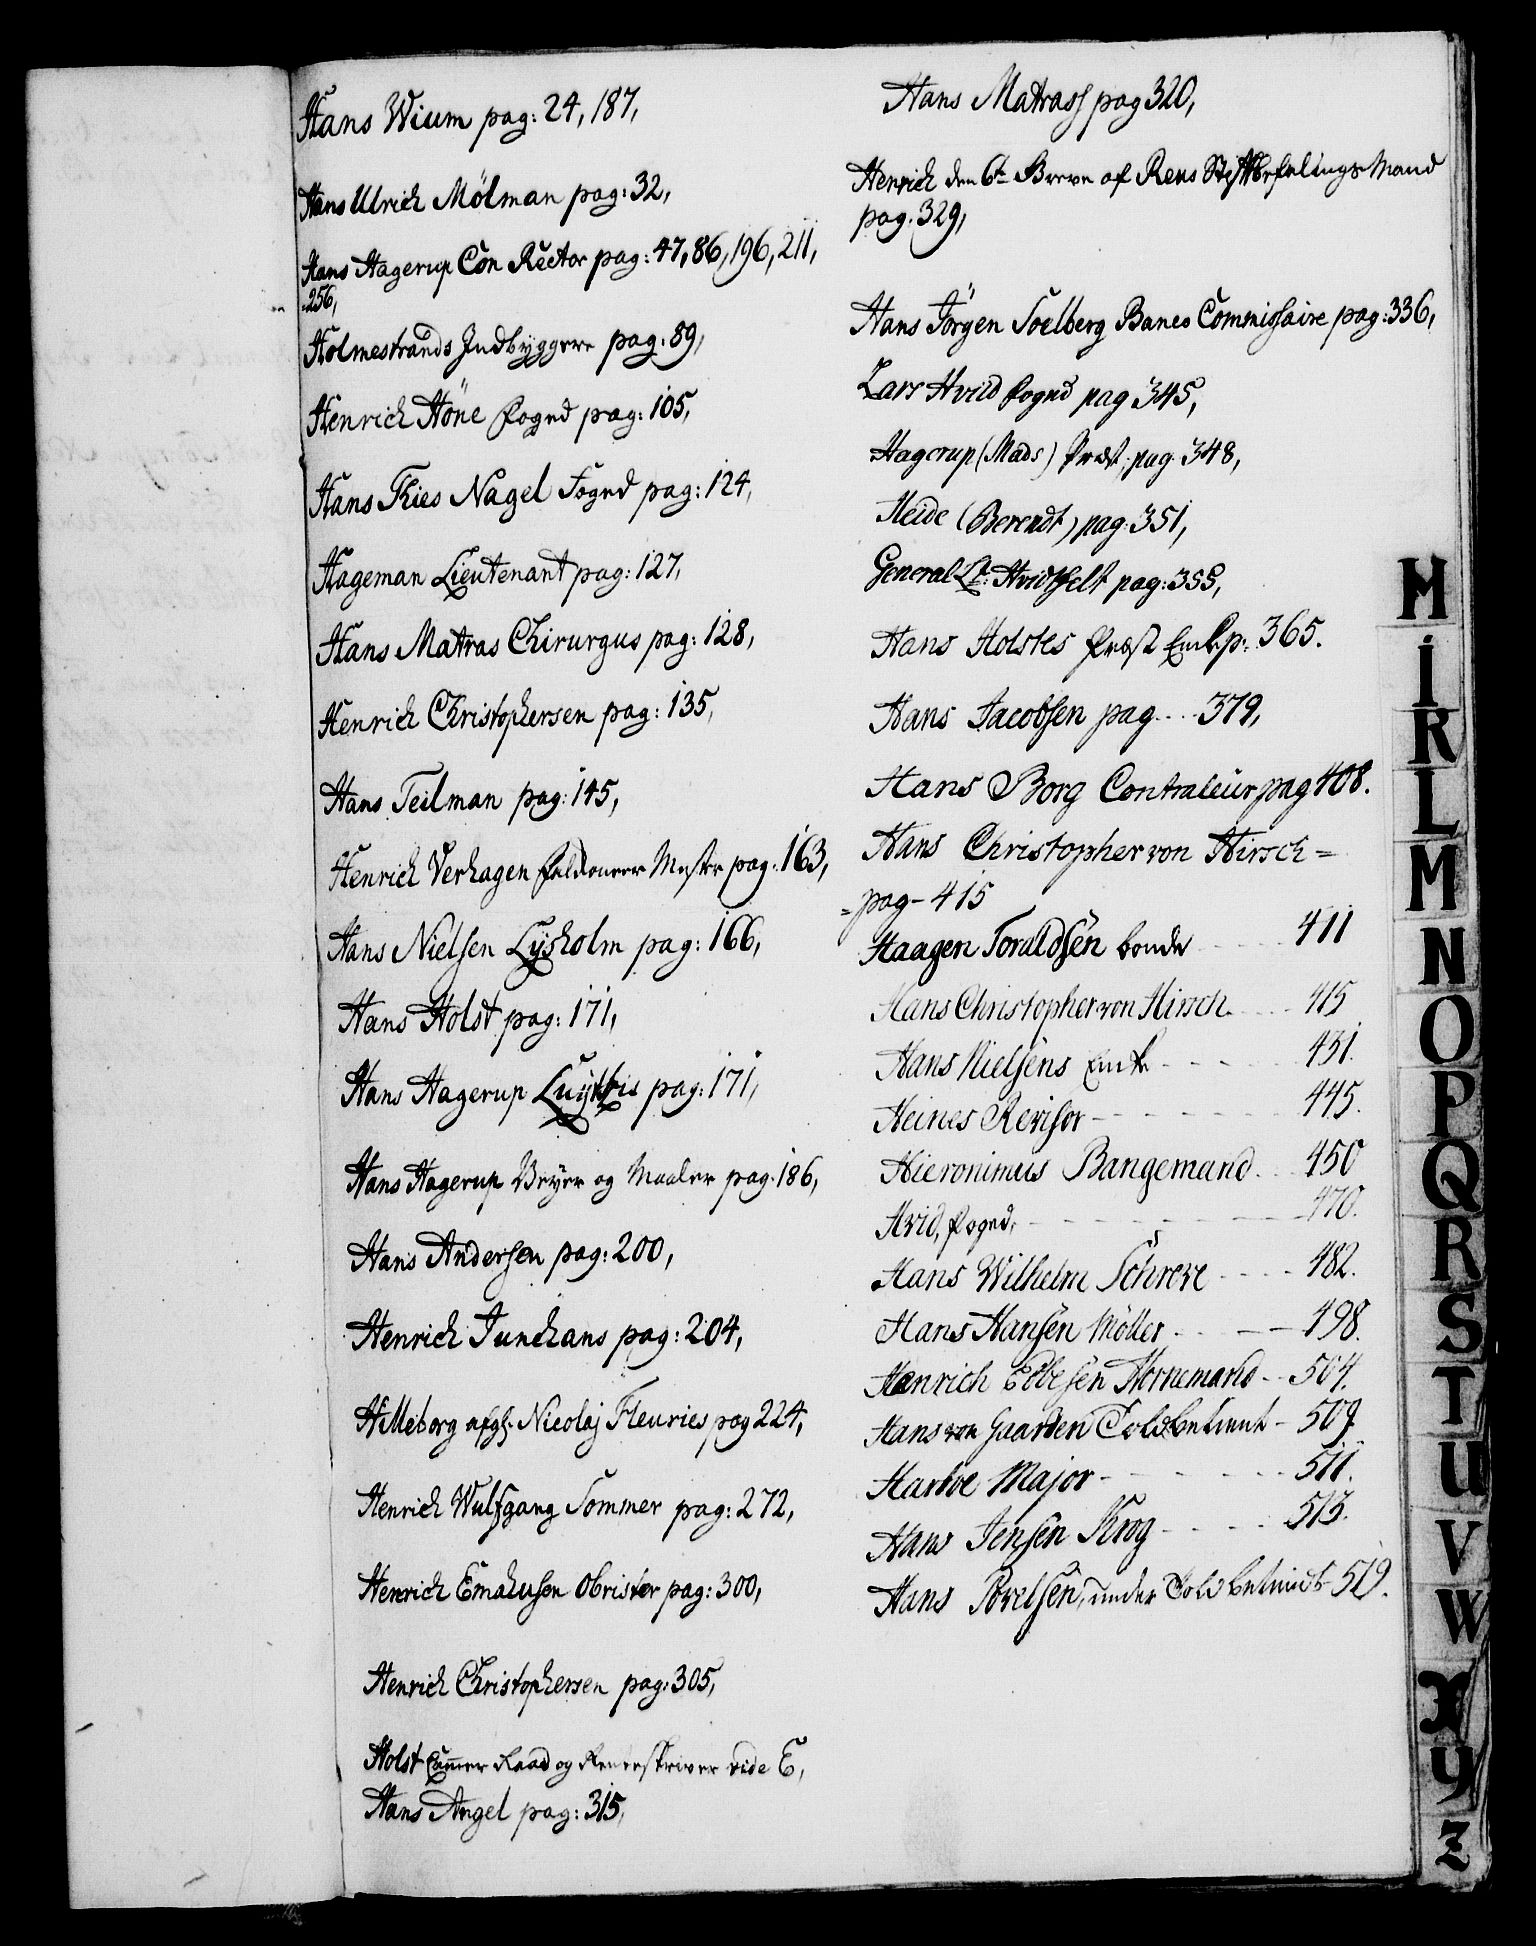 Hans Wium pag: 24, 187,
Hans Ulrich Mölman pag: 32,
Hans Hagerup Con Rector pag: 47, 86, 196, 211,
256,
Holmestrands Indbyggere pag: 89,
Henrich Höne Foged pag: 105,
Hans Thies Nagel Foged pag: 124,
Hageman Lieutenant pag: 127,
Hans Matras Chirurgus pag: 128,
Henrich Christophersen pag: 135,
Hans Teilman pag: 145,
Henrich Verhagen Mester pag: 163,
Hans Nielsen Lysholm pag: 166,
Hans Holst pag: 171,
Hans Hagerup pag: 171,
Hans Hagerup Veyer og Maaler pag: 186,
Hans Andersen pag: 200,
Henrich Junchans pag: 204,
Hilleborg afgl: Nicolaj Fleuries pag 224,
Henrich Wulfgang Sommer pag: 272,
Henrich Emahusen Obrister pag: 300,
Henrich Christophersen pag: 305,
Holst Cammer Raad og Renteskriver vide E,
Hans Angel pag: 315,
Hans Matrass pag 320,
Henrich den 6te Breve af Rens Stiftbefalings Mand
pag: 329,
Hans Jörgen Soelberg Banco Commissaire pag: 336,
Lars Hvid Foged pag 345,
Hagerup (Mads) Præst, pag 348,
Heide (Berendt) pag: 351,
General Lt: Hvidtfelt pag: 355,
Hans Holstes Præst Enke p: 365.
Hans Jacobsen pag.... 379,
Hans Borg Contraleur pag 408.
Hans Christopher von Hirsch =
= pag - 415
Haagen Toraldsen bonde 411
Hans Christopher von Hirsch 415
Hans Nielsens Enke 431.
Heines Revisor 445.
Hieronimus Bangemand 450
Hvid, Foged, 470.
Hans Wilhelm Schreve 482.
Hans Hansen Möller 498.
Henrich Ebbesen Hornemand 504.
Hans von Gaarden Toldbetient - 509
Hartve Major 511.
Hans Jensen Krog 513.
Hans Povelsen, under Toldbetient 519.
H
I
K
L
M
N
O
P
Q
R
S
T
U
V
W
X
Y
Z